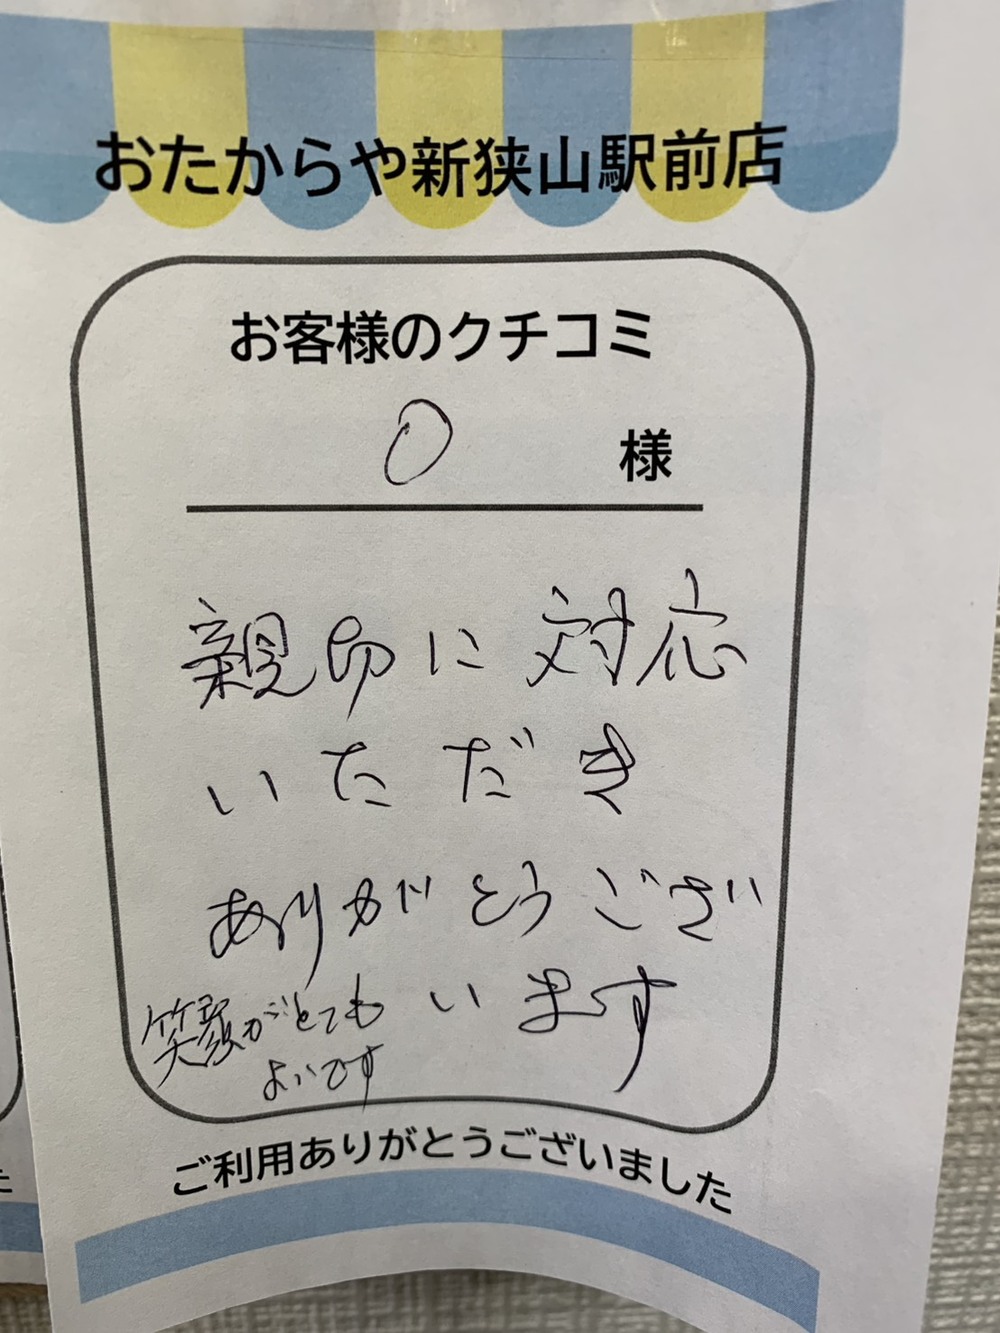 おたからや新狭山駅前店
お客様のクチコミ
O 様
親切に対応
いただき
ありがとうござ
います
笑顔がとても
よいです
ご利用ありがとうございました